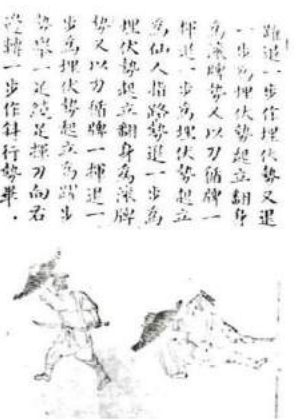 躍退一步作埋伏勢又退
一步為埋伏勢起立翻身
為滾牌勢又以刀循牌一
揮退一步為埋伏勢起立
為仙人指路勢退一步為
埋伏勢起立翻身為滾牌
勢又以刀循牌一揮退一
步為埋伏勢起立為躍步
勢擧一足繞足揮刀向右
轉一步作斜行勢畢